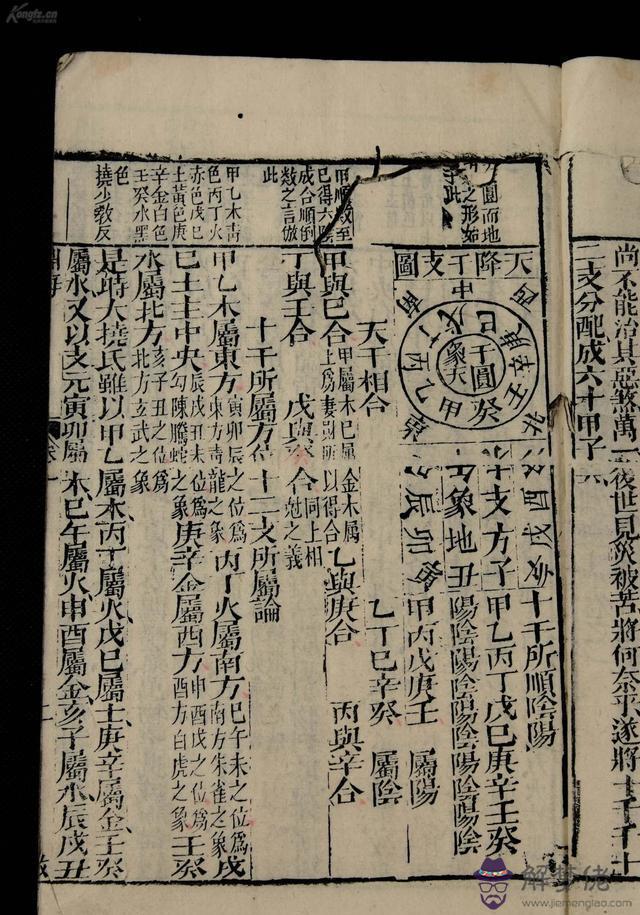 Kongfz.cn
尚不能治其惡煞萬一後世見災被苦將何奈乎遂將十干十
二支分配成六十甲子
圓而地
之形如
此
天降干支圖
干圓
象天
十支方
象地
十干所順陰陽
甲乙丙丁戊巳庚辛壬癸
陽陰陽陰陽陰陽陰陽陰
甲丙戊庚壬 屬陽
乙丁巳辛癸 屬陰
天干相合
甲順數至
巳得六陰
成合順倒
數之言倣
此
甲與巳合
乙與庚合
丙與辛合
丁與壬合
戊與癸合
同上相
尅之義
十干所屬方位 十二支所屬論
甲乙木青
色丙丁火
赤色戊巳
土黃色庚
辛金白色
壬癸水黑
色
撓少教反
甲乙木屬東方
寅卯辰之位爲
東方青龍之象
丙丁火屬南方
巳午未之位爲
南方朱雀之象
戊
巳土主中央
辰戌丑未位爲
勾陳騰蛇之象
庚辛金屬西方
申酉戌之位爲
西方白虎之象
壬癸
水屬北方
亥子丑之位爲
北方玄武之象
是時大撓氏雖以甲乙屬木丙丁屬火戊巳屬土庚辛屬金壬癸
屬水又以支元寅卯屬木巳午屬火申酉屬金亥子屬水辰戌丑
淵海
卷一
二
解夢佬
www.jiemenglao.com